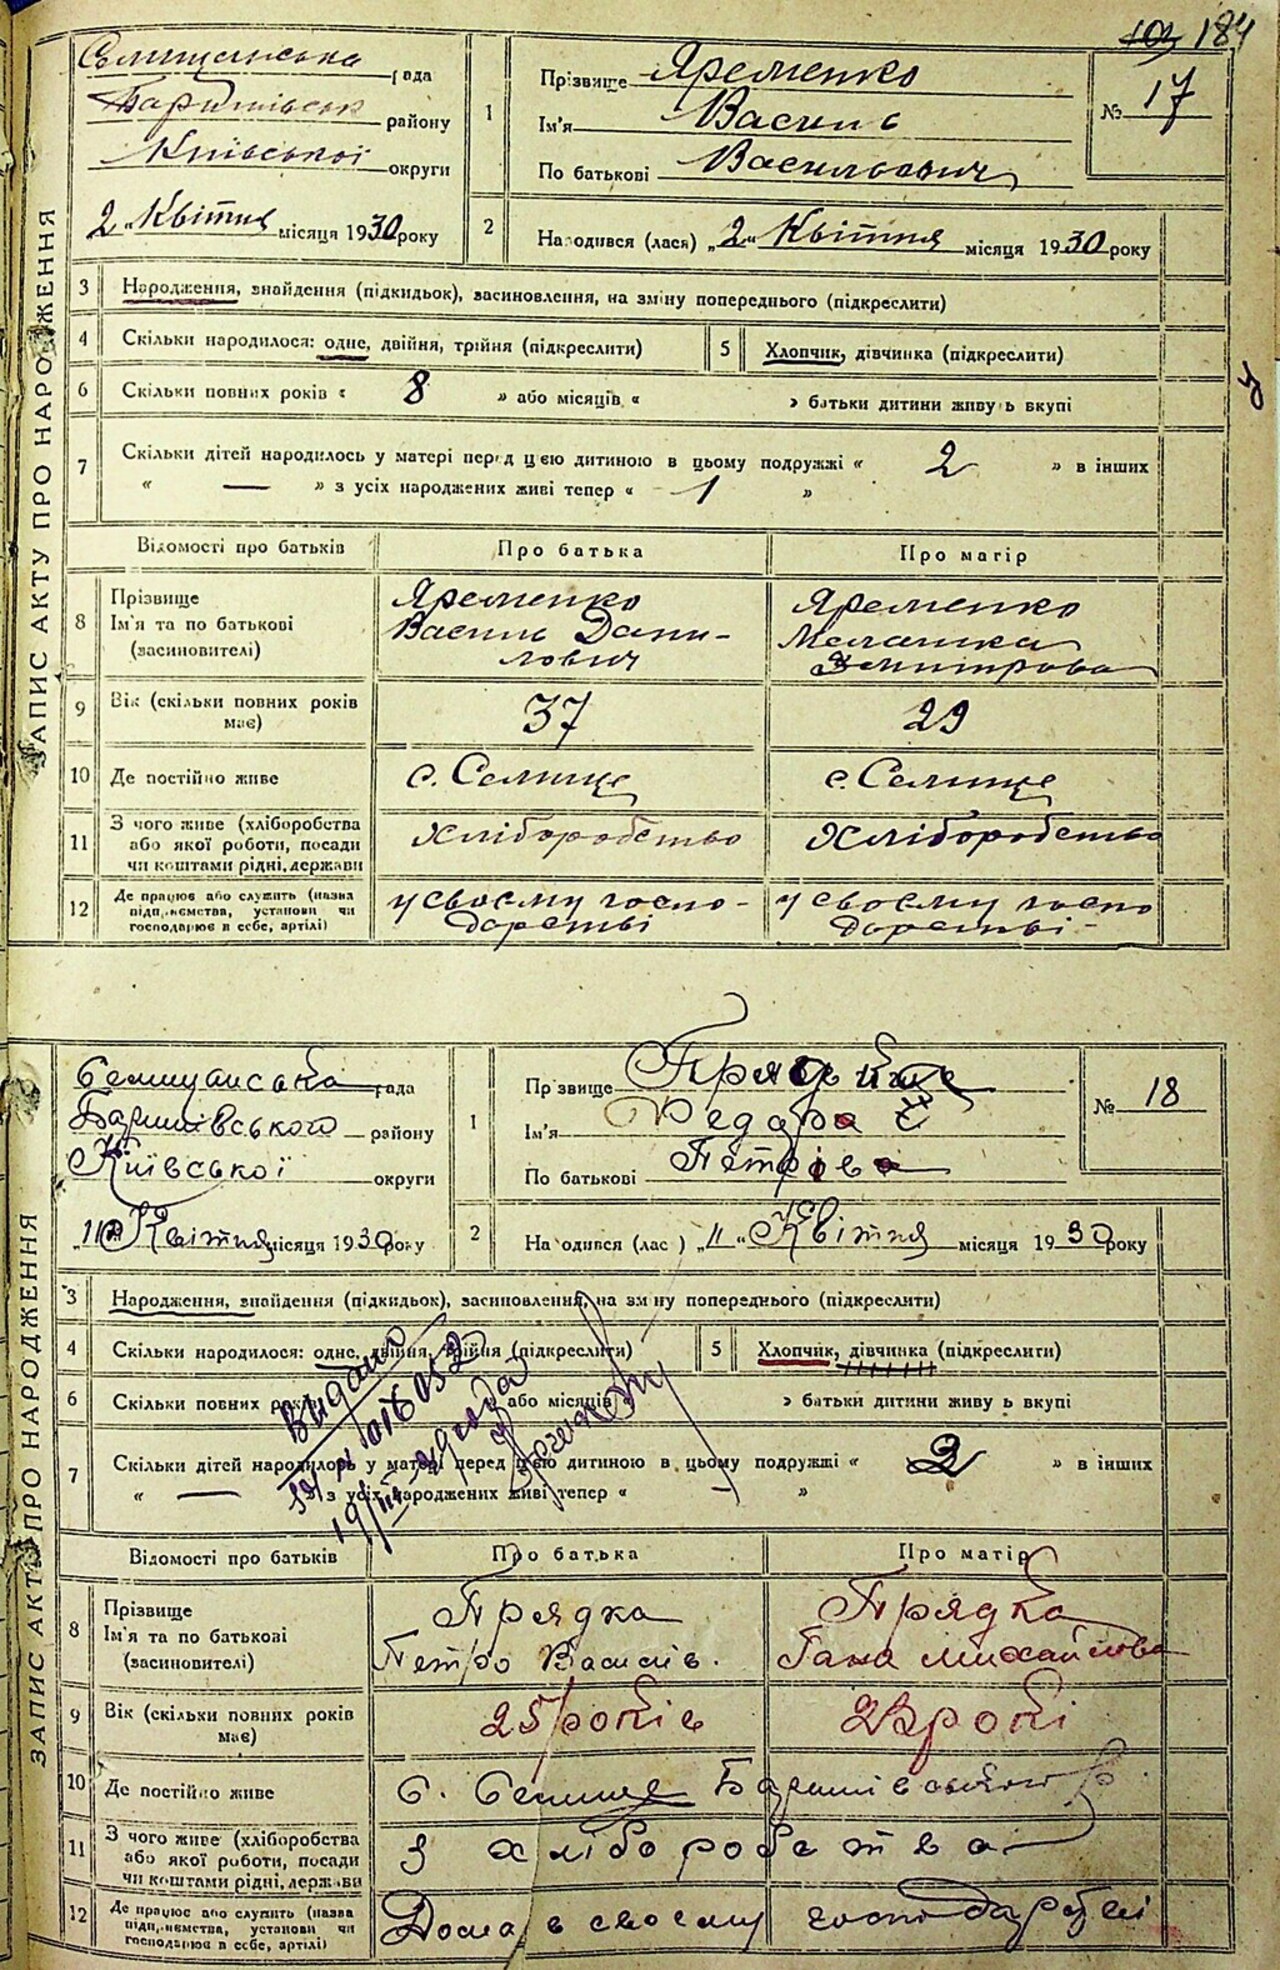 103 184
ЗАПИС АКТУ ПРО НАРОДЖЕННЯ
Селищанська рада
Баришівськ району
Київської округи
2 „ Квітня місяця 1930 року
1
Прізвище Яременко
Ім'я Василь
По батькові Васильович
№ 17
2
Народився (лася) „2“ Квітня місяця 1930 року
3 Народження, знайдення (підкидьок), засиновлення, на зміну попереднього (підкреслити)
4 Скільки народилося: одне, двійня, трійня (підкреслити) 5 Хлопчик, дівчинка (підкреслити)
6 Скільки повних років « 8 » або місяців « » батьки дитини живуть вкупі
7 Скільки дітей народилось у матері перед цією дитиною в цьому подружжі « 2 » в інших
« — » з усіх народжених живі тепер « 1 »
Відомості про батьків Про батька Про матір
8 Прізвище Ім'я та по батькові (засиновителі)
Яременко Василь Дани-
лович
Яременко
Меланка
Дмитрова
9 Вік (скільки повних років має) 37 29
10 Де постійно живе с. Селище с. Селище
11 З чого живе (хліборобства або якої роботи, посади чи коштами рідні, держави Хліборобство Хліборобство
12 Де працює або служить (назва підприємства, установи чи господарює в себе, артілі)
у своєму госпо-
дарстві
у своєму госпо
дарстві -
ЗАПИС АКТУ ПРО НАРОДЖЕННЯ
Селищанська рада
Баришівського району
Київської округи
„11“ Квітня місяця 1930 року
1
Прізвище Прядка
Ім'я
По батькові
№ 18
2
Народився (лас ) „11“ Квітня місяця 1930 року
3 Народження, знайдення (підкидьок), засиновлення, на зміну попереднього (підкреслити)
4 Скільки народилося: одне, двійня, трійня (підкреслити) 5 Хлопчик, дівчинка (підкреслити)
6 Скільки повних років або місяців « » батьки дитини живу ь вкупі
7 Скільки дітей народилось у матері перед цією дитиною в цьому подружжі « 2 » в інших
« — » з усіх народжених живі тепер « - »
Видано
19/III-
Відомості про батьків Про батька Про матір
8 Прізвище Ім'я та по батькові (засиновителі)
Прядка
Петро Василів.
Прядка
Гана Михайлова
9 Вік (скільки повних років має) 25 років роки
10 Де постійно живе с. Селище Баришівського р.
11 З чого живе (хліборобства або якої роботи, посади чи коштами рідні, держави З хліборобства
12 Де працює або служить (назва підприємства, установи чи господарює в себе, артілі) Дома в своєму господарстві